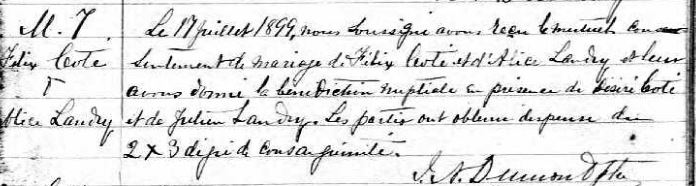 M. 7.
Felix Coté
&
Alice Landry
Le 17 juillet 1899, nous soussigné avons reçu le mutuel con-
sentement de mariage de Félix Coté et d'Alice Landry et leur
avons donné la bénédiction nuptiale en présence de Désiré Coté
et de Julien Landry. Les parties ont obtenu dispense du
2 x 3 degré de consanguinité.
J. N. Dumond Ptre